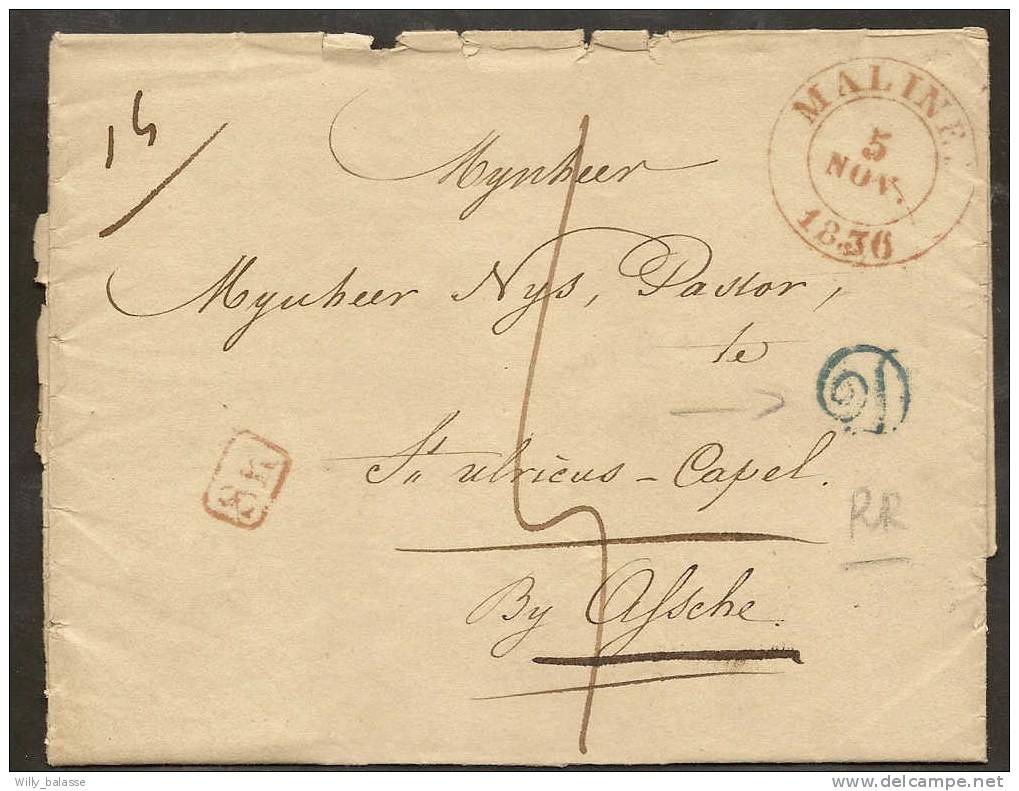 MALINE
5
NOV.
1836
Mynheer
Mynheer Nys, Pastor,
te
St ulricus - Capel.
SR
RR
By Assche.
Willy_balasse
delcampe.net